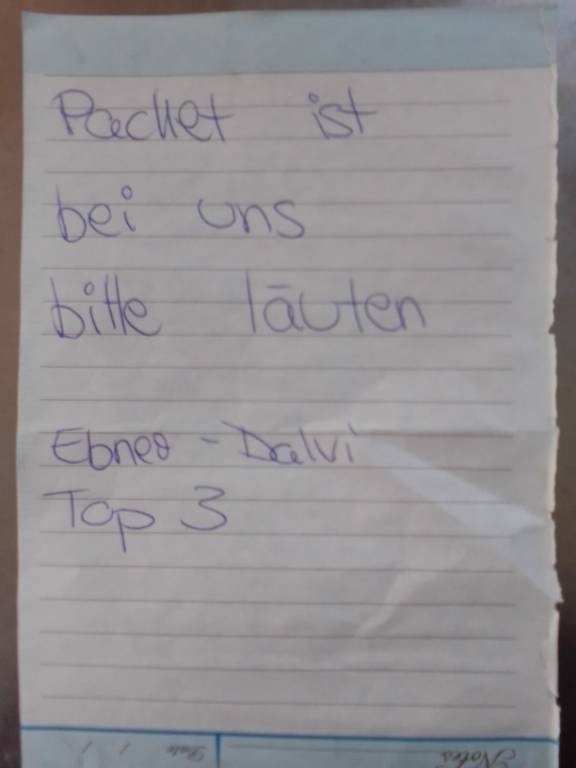 Packet ist
bei uns
bitte läuten
Ebner - Dalvi
Top 3
Notes
Date / /